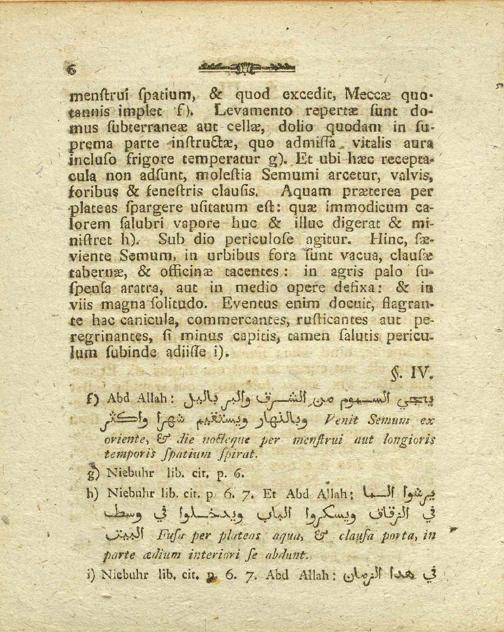 6
menſtrui ſpatium, & quod excedit, Meccæ quo-
tannis implet f). Levamento repertæ ſunt do-
mus ſubterraneæ aut cellæ, dolio quodam in ſu-
prema parte inſtructæ, quo admiſſa vitalis aura
incluſo frigore temperatur g). Et ubi hæc recepta-
cula non adſunt, moleſtia Semumi arcetur, valvis,
foribus & feneſtris clauſis. Aquam præterea per
plateas ſpargere uſitatum eſt: quæ immodicum ca-
lorem ſalubri vapore huc & illuc digerat & mi-
niſtret h). Sub dio periculoſe agitur. Hinc, ſæ-
viente Semum, in urbibus fora ſunt vacua, clauſæ
tabernæ, & officinæ tacentes: in agris palo ſu-
ſpenſa aratra, aut in medio opere defixa: & in
viis magna ſolitudo. Eventus enim docuit, flagran-
te hac canicula, commercantes, ruſticantes aut pe-
regrinantes, ſi minus capitis, tamen ſalutis pericu-
lum ſubinde adiiſſe i).
§. IV.
f) Abd Allah: يتجي السموم من الشرف والبر باليل
وبالنهار ويستقيم شهرا واكثر Venit Semum ex
oriente, & die nocteque per menſtrui aut longioris
temporis ſpatium ſpirat.
g) Niebuhr lib. cit. p. 6.
h) Niebuhr lib. cit. p. 6. 7. Et Abd Allah: يرشوا الما
في الزقاق ويسكروا الباب ويدخلوا في وسط
البيت Fuſa per plateas aqua, & clauſa porta, in
parte ædium interiori ſe abdunt.
i) Niebuhr lib. cit. p. 6. 7. Abd Allah: في هدا الزمان